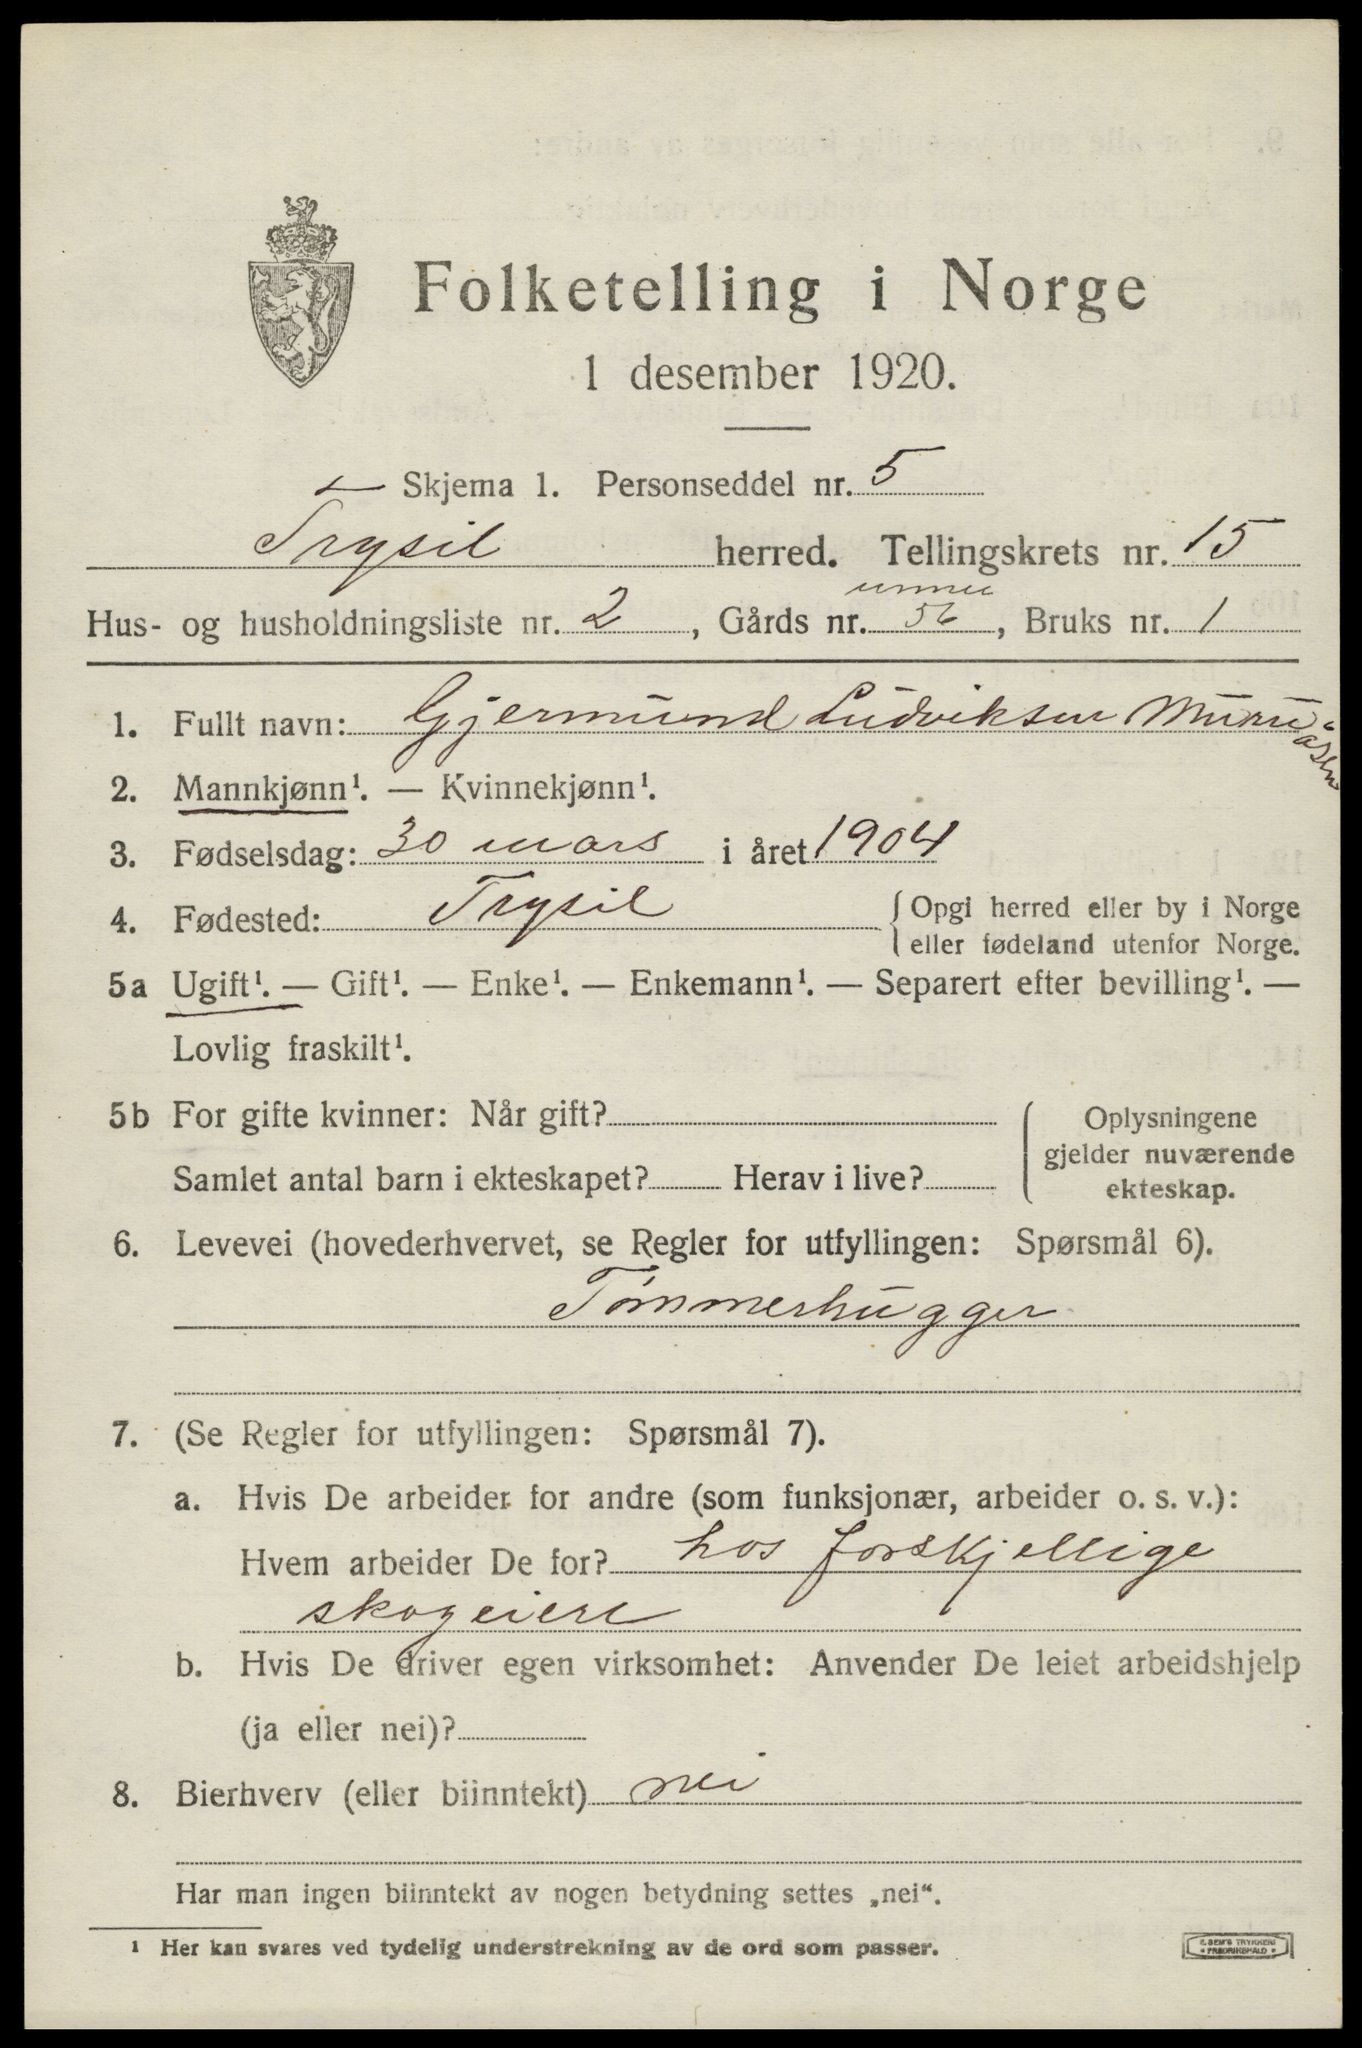 Folketelling i Norge
1 desember 1920.
Skjema 1. Personseddel nr. 5
Trysil herred. Tellingskrets nr. 15
Hus- og husholdningsliste nr. 2, Gårds nr. 56, Bruks nr. 1
1. Fullt navn: Gjermund Ludviksen Munu
åsen
2. Mannkjønn¹. — Kvinnekjønn¹.
3. Fødselsdag: 30 mars i året 1904
4. Fødested: Trysil {Opgi herred eller by i Norge
eller fødeland utenfor Norge.
5a Ugift¹. — Gift¹. — Enke¹. — Enkemann¹. — Separert efter bevilling¹. —
Lovlig fraskilt¹.
5b For gifte kvinner: Når gift?
Samlet antal barn i ekteskapet? Herav i live?
{Oplysningene
gjelder nuværende
ekteskap.
6. Levevei (hovederhvervet, se Regler for utfyllingen: Spørsmål 6).
Tømmerhugger
7. (Se Regler for utfyllingen: Spørsmål 7).
a. Hvis De arbeider for andre (som funksjonær, arbeider o. s. v.):
Hvem arbeider De for? hos forskjellige
skogeiere
b. Hvis De driver egen virksomhet: Anvender De leiet arbeidshjelp
(ja eller nei)?
8. Bierhverv (eller biinntekt) nei
Har man ingen biinntekt av nogen betydning settes „nei“.
¹ Her kan svares ved tydelig understrekning av de ord som passer.
E. SEM'S TRYKKERI
FREDRIKSHALD